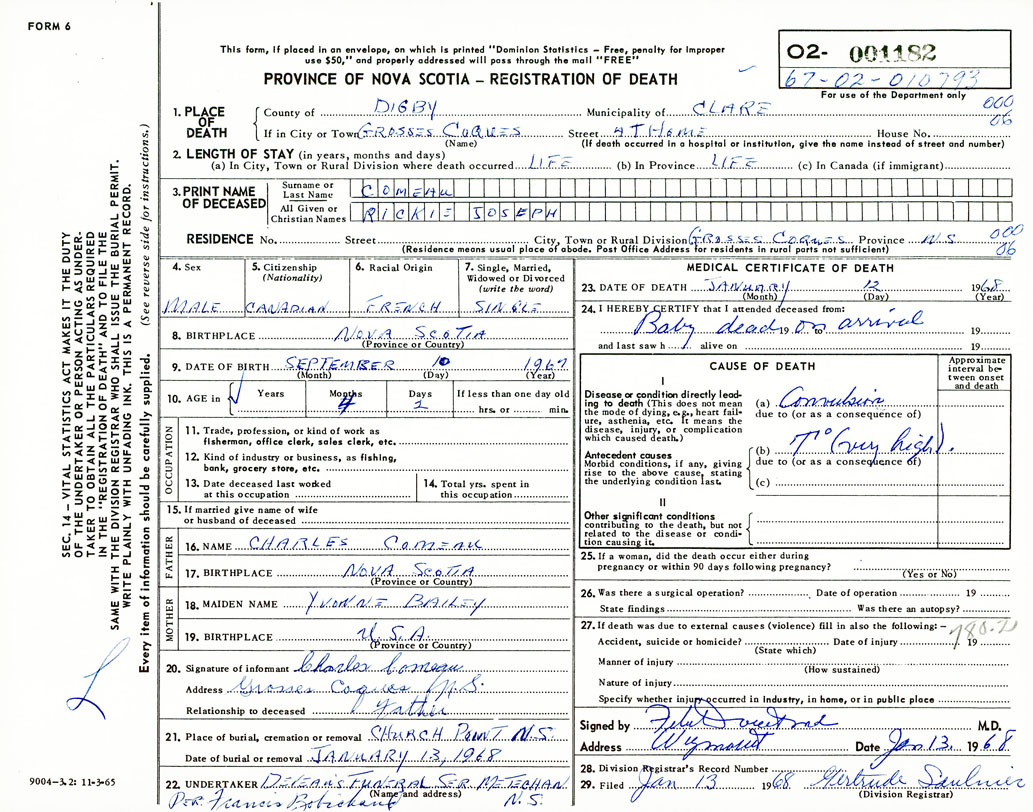 FORM 6
This form, if placed in an envelope, on which is printed "Dominion Statistics – Free, penalty for improper
use $50," and properly addressed will pass through the mail "FREE"
PROVINCE OF NOVA SCOTIA – REGISTRATION OF DEATH
02- 001182
67-02-010793
For use of the Department only
1. PLACE OF DEATH
County of DIGBY Municipality of CLARE 000
If in City or Town GROSSES COQUES Street AT HOME House No. 06
(Name) (If death occurred in a hospital or institution, give the name instead of street and number)
2. LENGTH OF STAY (in years, months and days)
(a) In City, Town or Rural Division where death occurred LIFE (b) In Province LIFE (c) In Canada (if immigrant)
3. PRINT NAME OF DECEASED
Surname or Last Name COMEAU
All Given or Christian Names RICKIE JOSEPH
RESIDENCE No. Street City, Town or Rural Division GROSSES COQUES Province N.S 000
(Residence means usual place of abode. Post Office Address for residents in rural parts not sufficient) 06
SEC. 14 – VITAL STATISTICS ACT MAKES IT THE DUTY
OF THE UNDERTAKER OR PERSON ACTING AS UNDER-
TAKER TO OBTAIN ALL THE PARTICULARS REQUIRED
IN THE "REGISTRATION OF DEATH" AND TO FILE THE
SAME WITH THE DIVISION REGISTRAR WHO SHALL ISSUE THE BURIAL PERMIT.
WRITE PLAINLY WITH UNFADING INK. THIS IS A PERMANENT RECORD.
Every item of information should be carefully supplied. (See reverse side for instructions.)
4. Sex
MALE
5. Citizenship
(Nationality)
CANADIAN
6. Racial Origin
FRENCH
7. Single, Married,
Widowed or Divorced
(write the word)
SINGLE
8. BIRTHPLACE NOVA SCOTIA
(Province or Country)
9. DATE OF BIRTH SEPTEMBER 10 1967
(Month) (Day) (Year)
10. AGE in Years Months Days If less than one day old
4 2 hrs. or min.
OCCUPATION
11. Trade, profession, or kind of work as
fisherman, office clerk, sales clerk, etc.
12. Kind of industry or business, as fishing,
bank, grocery store, etc.
13. Date deceased last worked
at this occupation
14. Total yrs. spent in
this occupation
15. If married give name of wife
or husband of deceased
FATHER
16. NAME CHARLES COMEAU
17. BIRTHPLACE NOVA SCOTIA
(Province or Country)
MOTHER
18. MAIDEN NAME YVONNE BAILEY
19. BIRTHPLACE U.S.A.
(Province or Country)
20. Signature of informant Charles Comeau
Address Grosses Coques N.S.
Relationship to deceased Father
21. Place of burial, cremation or removal CHURCH POINT N.S.
Date of burial or removal JANUARY 13, 1968
22. UNDERTAKER FUNERAL SER. METEGHAN
(Name and address) N.S.
Per Francis
9004–3.2: 11-3-65
MEDICAL CERTIFICATE OF DEATH
23. DATE OF DEATH JANUARY 12 1968
(Month) (Day) (Year)
24. I HEREBY CERTIFY that I attended deceased from:
Baby dead 19 on arrival 19
and last saw h alive on 19
CAUSE OF DEATH
Approximate
interval be-
tween onset
and death
I
Disease or condition directly lead-
ing to death (This does not mean
the mode of dying, e.g., heart fail-
ure, asthenia, etc. It means the
disease, injury, or complication
which caused death.)
(a) Convulsion
due to (or as a consequence of)
Antecedent causes
Morbid conditions, if any, giving
rise to the above cause, stating
the underlying condition last.
(b) T° (very high).
due to (or as a consequence of)
(c)
II
Other significant conditions
contributing to the death, but not
related to the disease or condi-
tion causing it.
25. If a woman, did the death occur either during
pregnancy or within 90 days following pregnancy?
(Yes or No)
26. Was there a surgical operation? Date of operation 19
State findings Was there an autopsy?
27. If death was due to external causes (violence) fill in also the following: – 780.2
Accident, suicide or homicide? Date of injury 19
(State which)
Manner of injury
(How sustained)
Nature of injury
Specify whether injury occurred in industry, in home, or in public place
Signed by M.D.
Address Date Jan 13, 1968
28. Division Registrar's Record Number
29. Filed Jan 13 1968 Gertrude Saulnier
(Division Registrar)